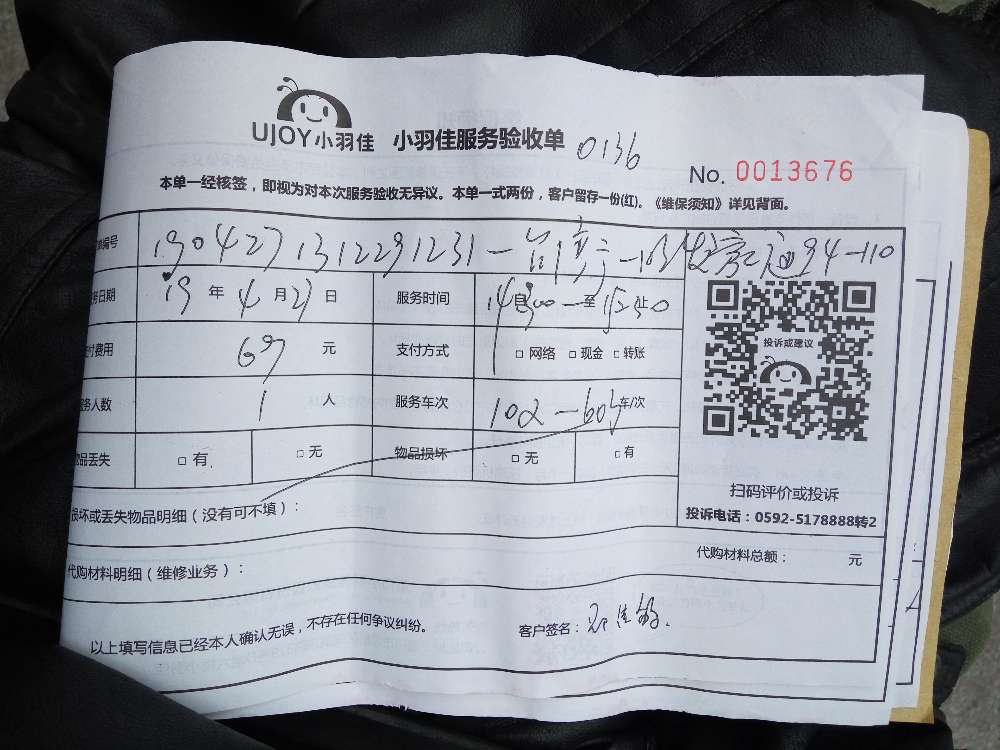 UJOY小羽佳 小羽佳服务验收单 0136
No. 0013676
本单一经核签，即视为对本次服务验收无异议。本单一式两份，客户留存一份(红)。《维保须知》详见背面。
编号 1904271312291231
日期 19 年 4 月 27 日 服务时间 14 自 00 至 15 止
付费用 69 元 支付方式 □ 网络 □ 现金 □ 转账
投诉或建议
务人数 1 人 服务车次 102 — 60 车/次
品丢失 □ 有 □ 无 物品损坏 □ 无 □ 有
扫码评价或投诉
损坏或丢失物品明细（没有可不填）：
投诉电话：0592-5178888转2
代购材料明细（维修业务）：
代购材料总额： 元
以上填写信息已经本人确认无误，不存在任何争议纠纷。 客户签名：